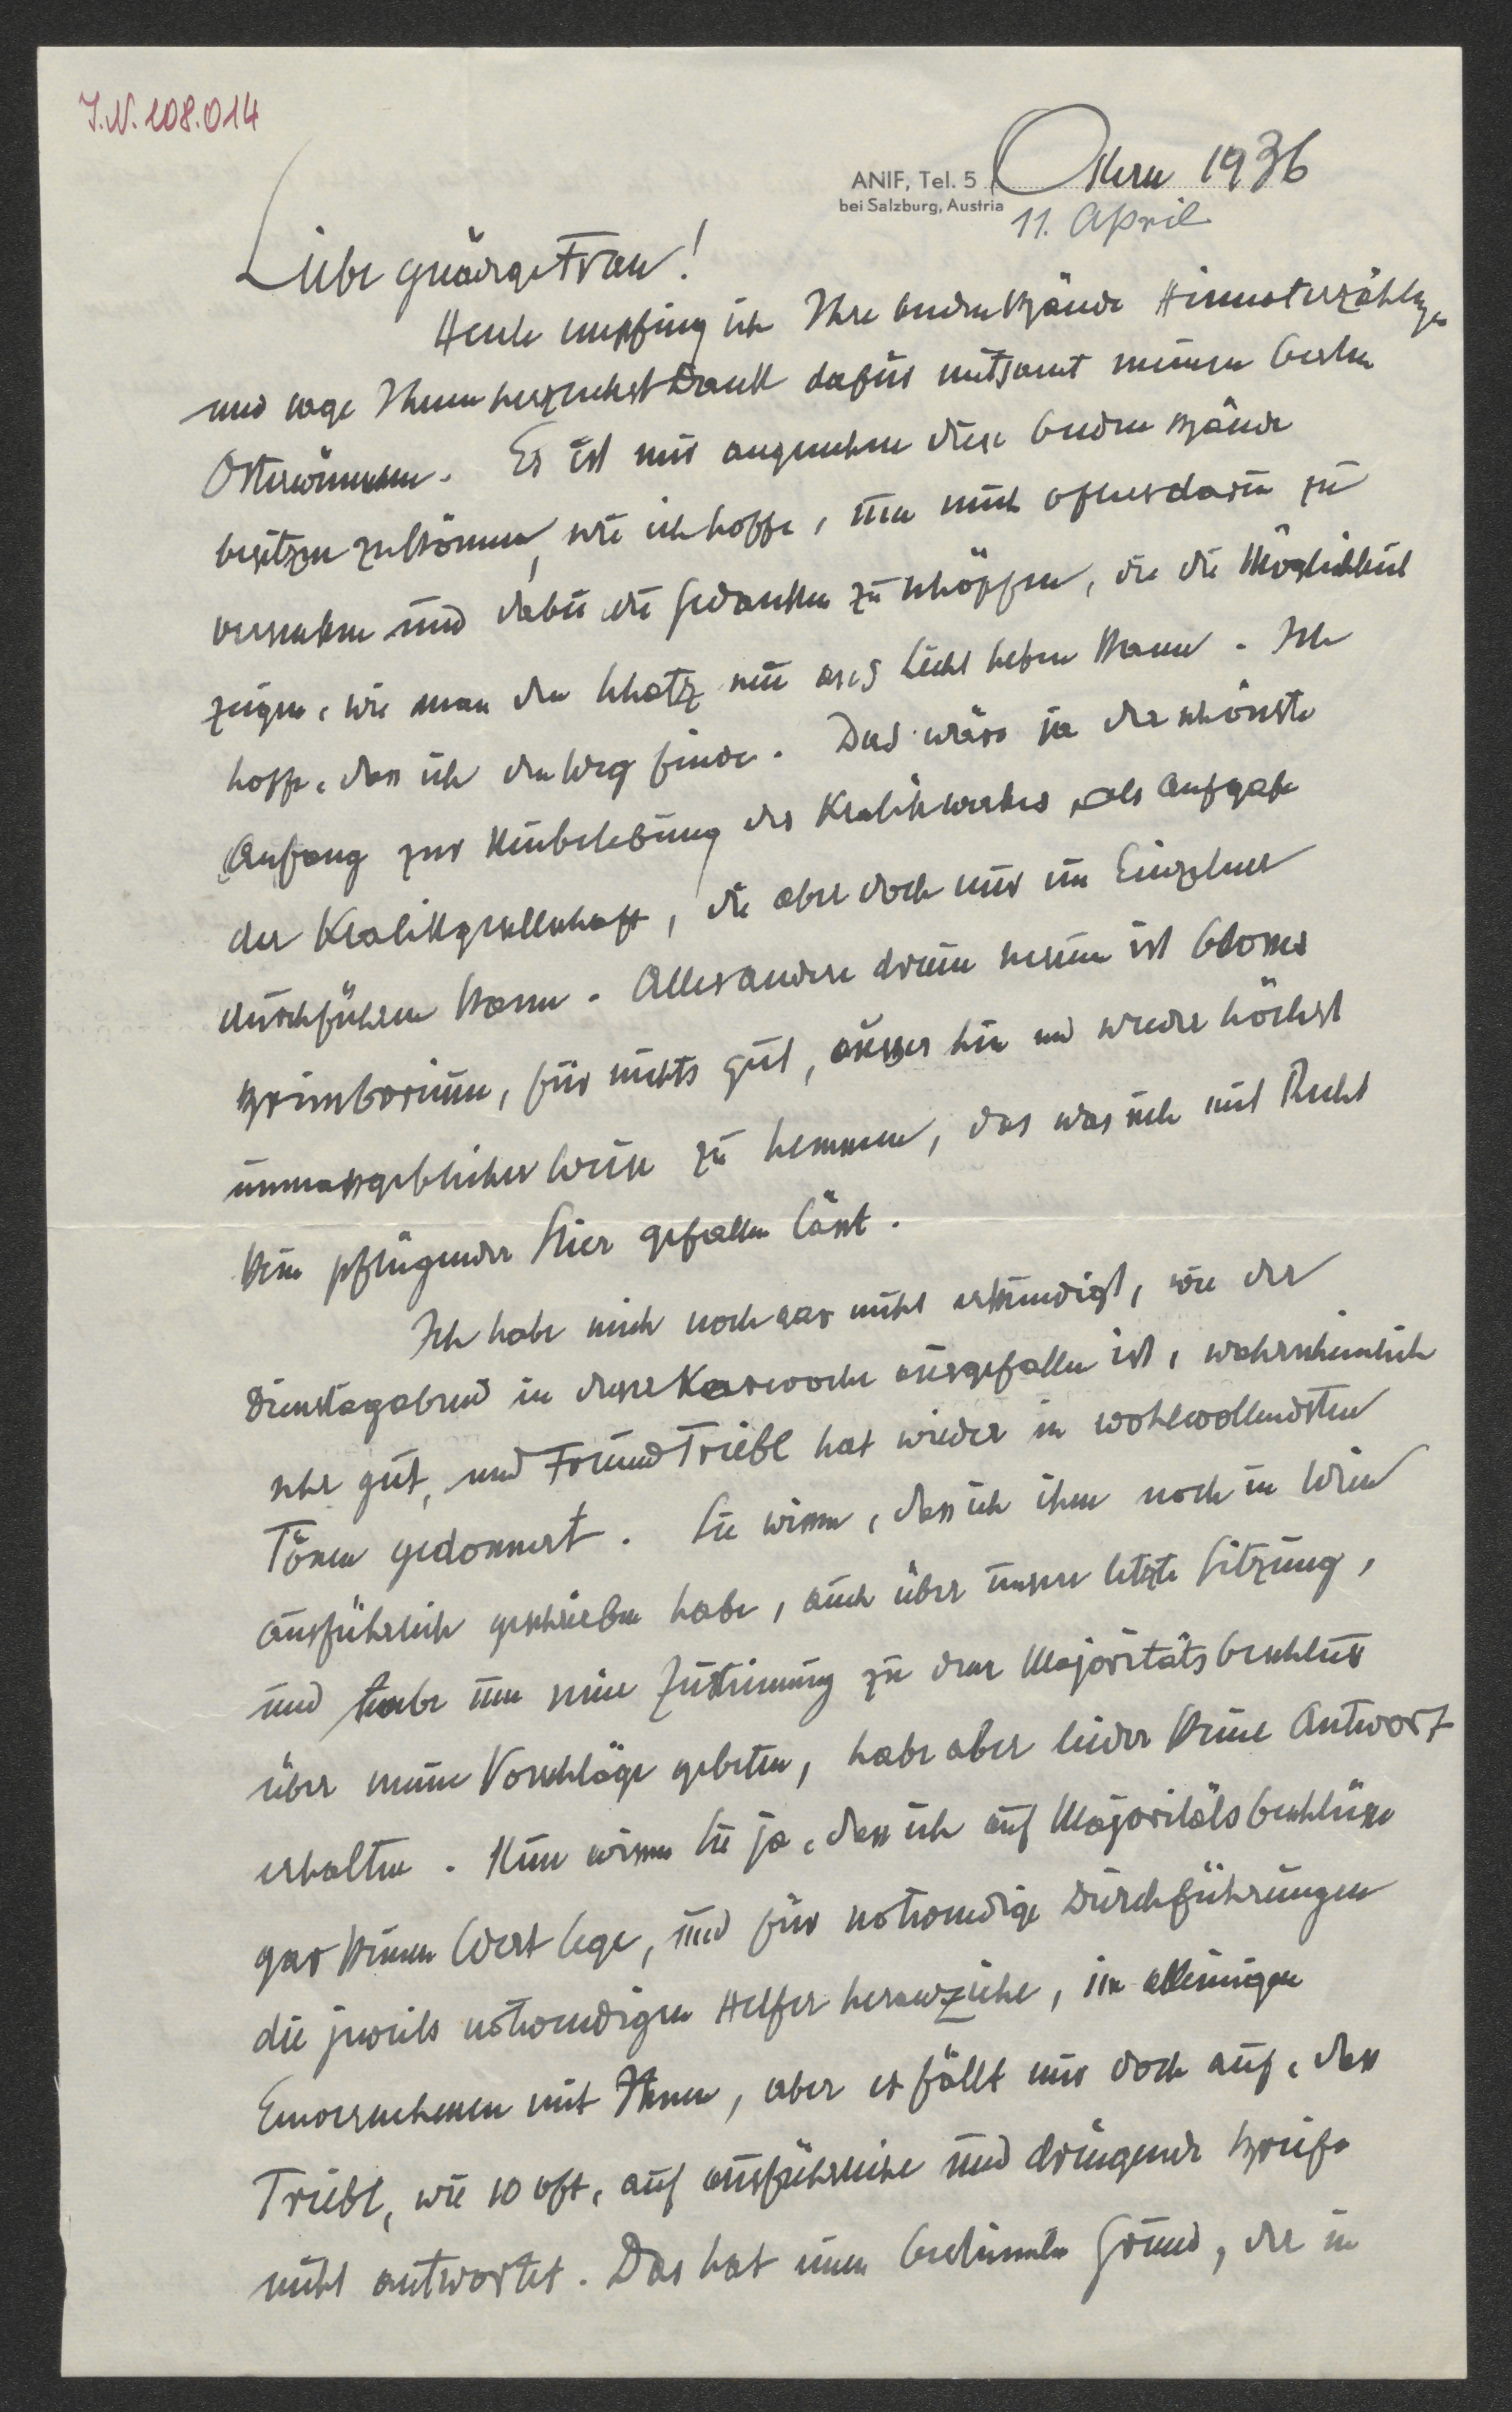 J.N. 108.014
ANIF, Tel. 5 Ostern 1936
bei Salzburg, Austria 11. April
Liebe gnädige Frau!
Heute empfing ich Ihre beiden Bände Heimaterzählungen
und sage Ihnen herzlichst Dank dafür mitsamt meinen besten
Osterwünschen. Es ist mir angenehm diese beiden Bände
besitzen zu können, wie ich hoffe, um mich öfter darin zu
versenken und dabei die Gedanken zu schöpfen, die die Möglichkeit
zeigen, wie man den Schatz neu ans Licht heben kann. Ich
hoffe, dass ich den Weg finde. Das wäre ja der schönste
Anfang zur Neubelebung des Kralikwerkes, als Aufgabe
der Kralikgesellschaft, die aber doch nur im Einzelner
durchführen kann. Alles andere drum herum ist blosses
Brimborium, für nichts gut, ausser hin und wieder höchst
unmassgeblicher Weise zu hemmen, das was sich mit Recht
kein pflügender Stier gefallen lässt.
Ich habe mich noch gar nicht erkundigt, wie der
Dienstagabend in dieser Karwoche ausgefallen ist, wahrscheinlich
sehr gut, und Freund Triebl hat wieder in wohlwollendsten
Tönen gedonnert. Sie wissen, dass ich ihm noch in Wien
ausführlich geschrieben habe, auch über unsere letzte Sitzung,
und habe um seine Zustimmung zu dem Majoritätsbeschluss
über meine Vorschläge gebeten, habe aber leider keine Antwort
erhalten. Nun wissen Sie ja, dass ich auf Majoritätsbeschlüsse
gar keinen Wert lege, und für notwendige Durchführungen
die jeweils notwendigen Helfer heranziehe, im alleinigen
Einvernehmen mit Ihnen, aber es fällt mir doch auf, dass
Triebl, wie so oft, auf ausführliche und dringende Briefe
nicht antwortet. Das hat einen bestimmten Grund, der in